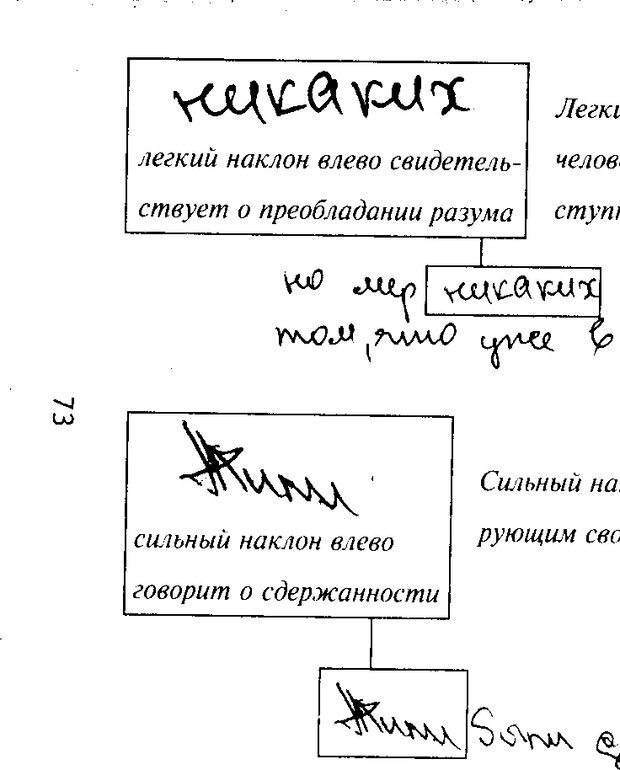 никаких
легкий наклон влево свидетель-
ствует о преобладании разума
Легки
челов
ступ
но мер никаких
том, что уже в
73
Жили
сильный наклон влево
говорит о сдержанности
Сильный на
рующим сво
Жили были